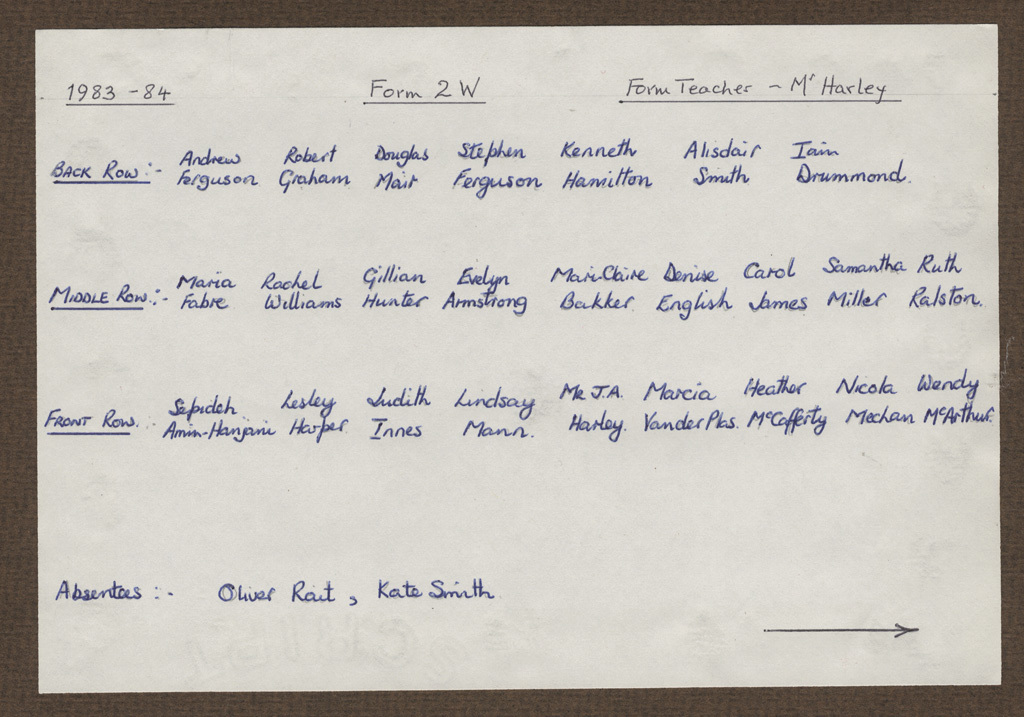 1983 - 84 Form 2 W Form Teacher - Mr Harley
Andrew Robert Douglas Stephen Kenneth Alisdair Iain
BACK ROW :- Ferguson Graham Mair Ferguson Hamilton Smith Drummond.
Maria Rachel Gillian Evelyn Mari-Claire Denise Carol Samantha Ruth
MIDDLE ROW :- Fabre Williams Hunter Armstrong Bakker English James Miller Ralston.
Sepideh Lesley Judith Lindsay Mr J.A. Marcia Heather Nicola Wendy
FRONT ROW. Amin-Hanjani Harper Innes Mann. Harley. Vander Plas. McCafferty Mechan McArthur.
Absentees :- Oliver Rait, Kate Smith